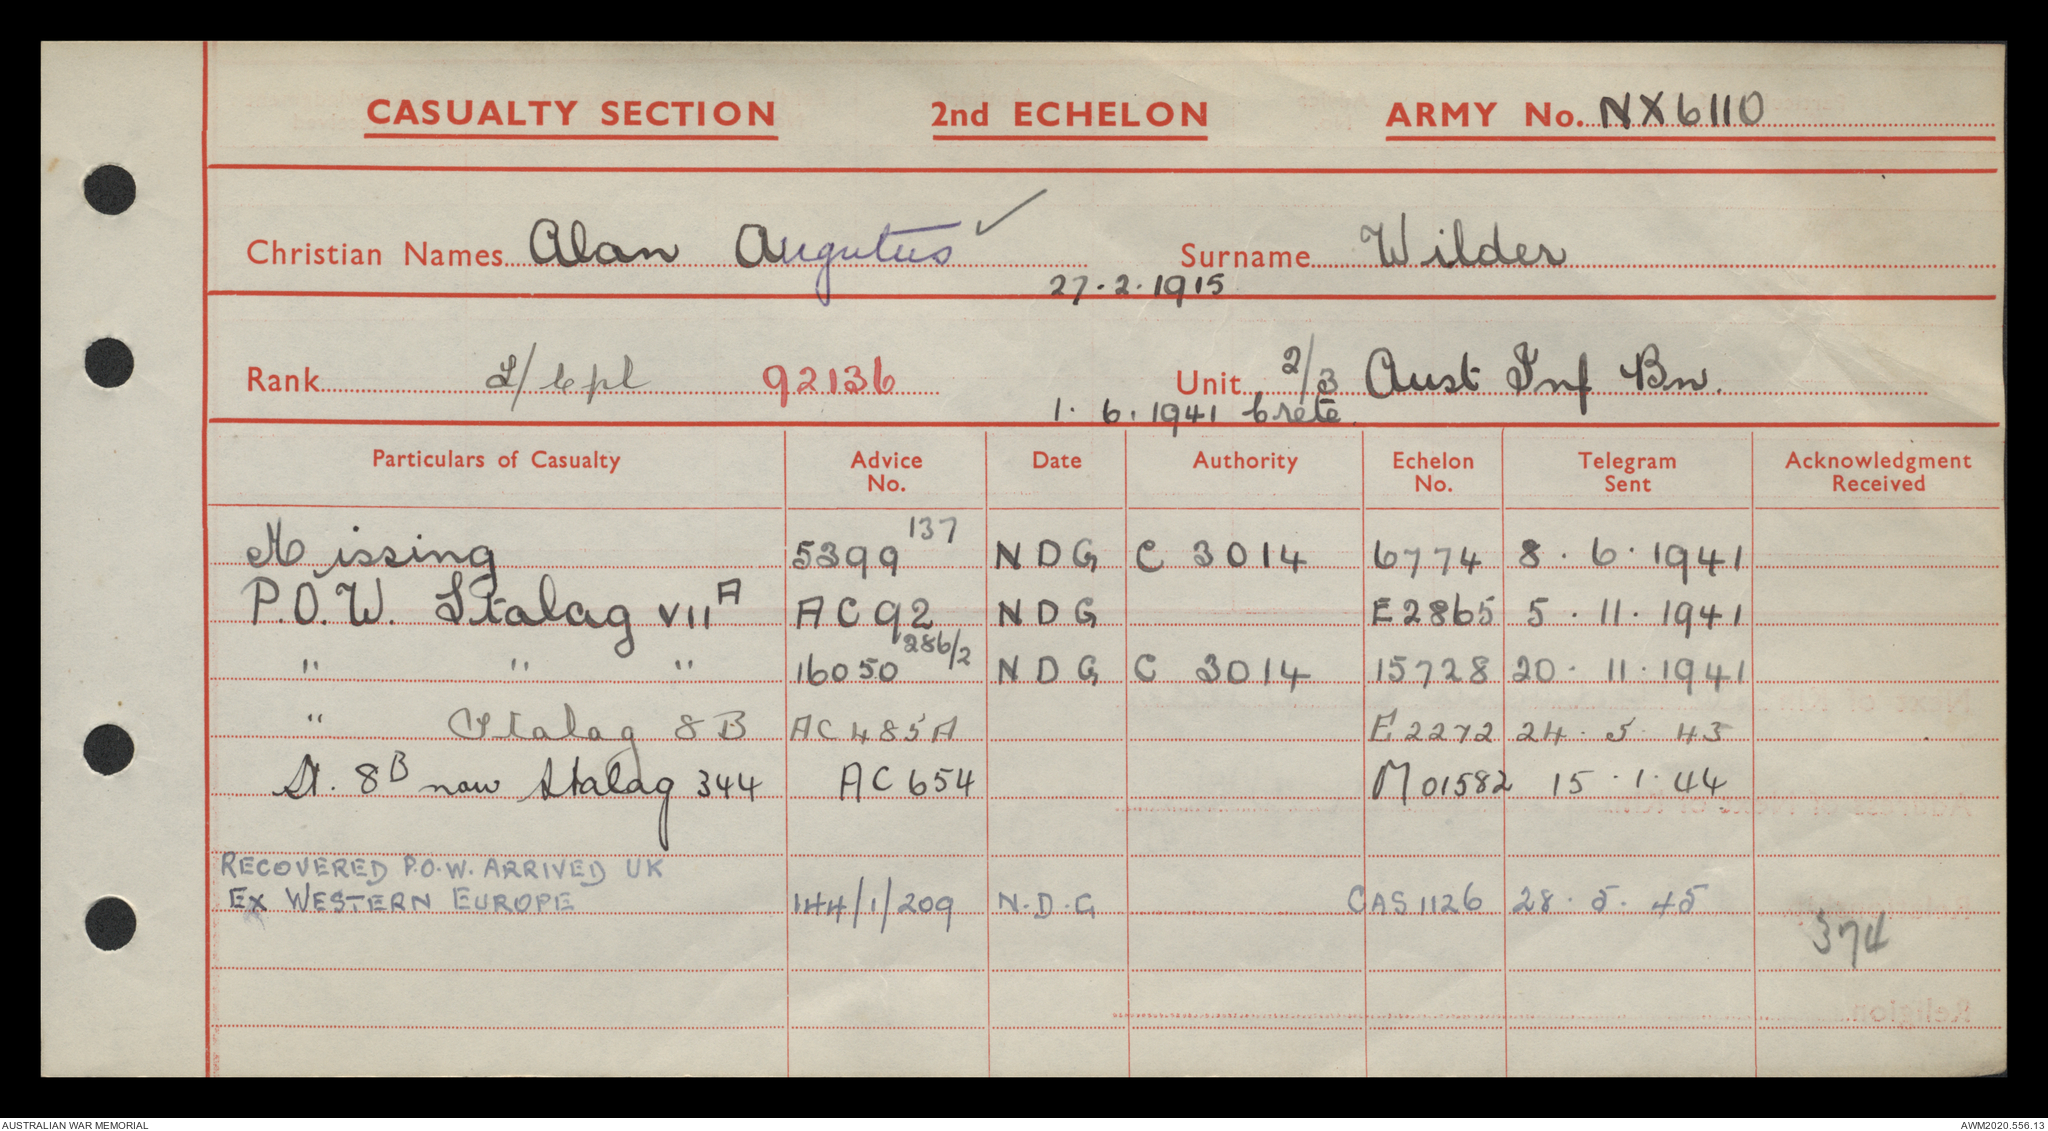 CASUALTY SECTION 2nd ECHELON ARMY No. NX6110
Christian Names Alan Augutus Surname Wilder
27.2.1915
Rank L/Cpl 92136 Unit 2/3 Aust Inf Bn.
1.6.1941 Crete.
Particulars of Casualty Advice No. Date Authority Echelon No. Telegram Sent Acknowledgment Received
Missing 5399 137 NDG C 3014 6774 8.6.1941
P.O.W. Stalag VIIA AC92 NDG E2865 5.11.1941
" " " 16050 286/2 NDG C 3014 15728 20.11.1941
" Stalag 8B AC485A E2272 24.5.43
St. 8B now Stalag 344 AC654 M01582 15.1.44
RECOVERED P.O.W. ARRIVED UK
EX WESTERN EUROPE 144/1/209 N.D.G CAS1126 28.5.45
374
AUSTRALIAN WAR MEMORIAL AWM2020.556.13